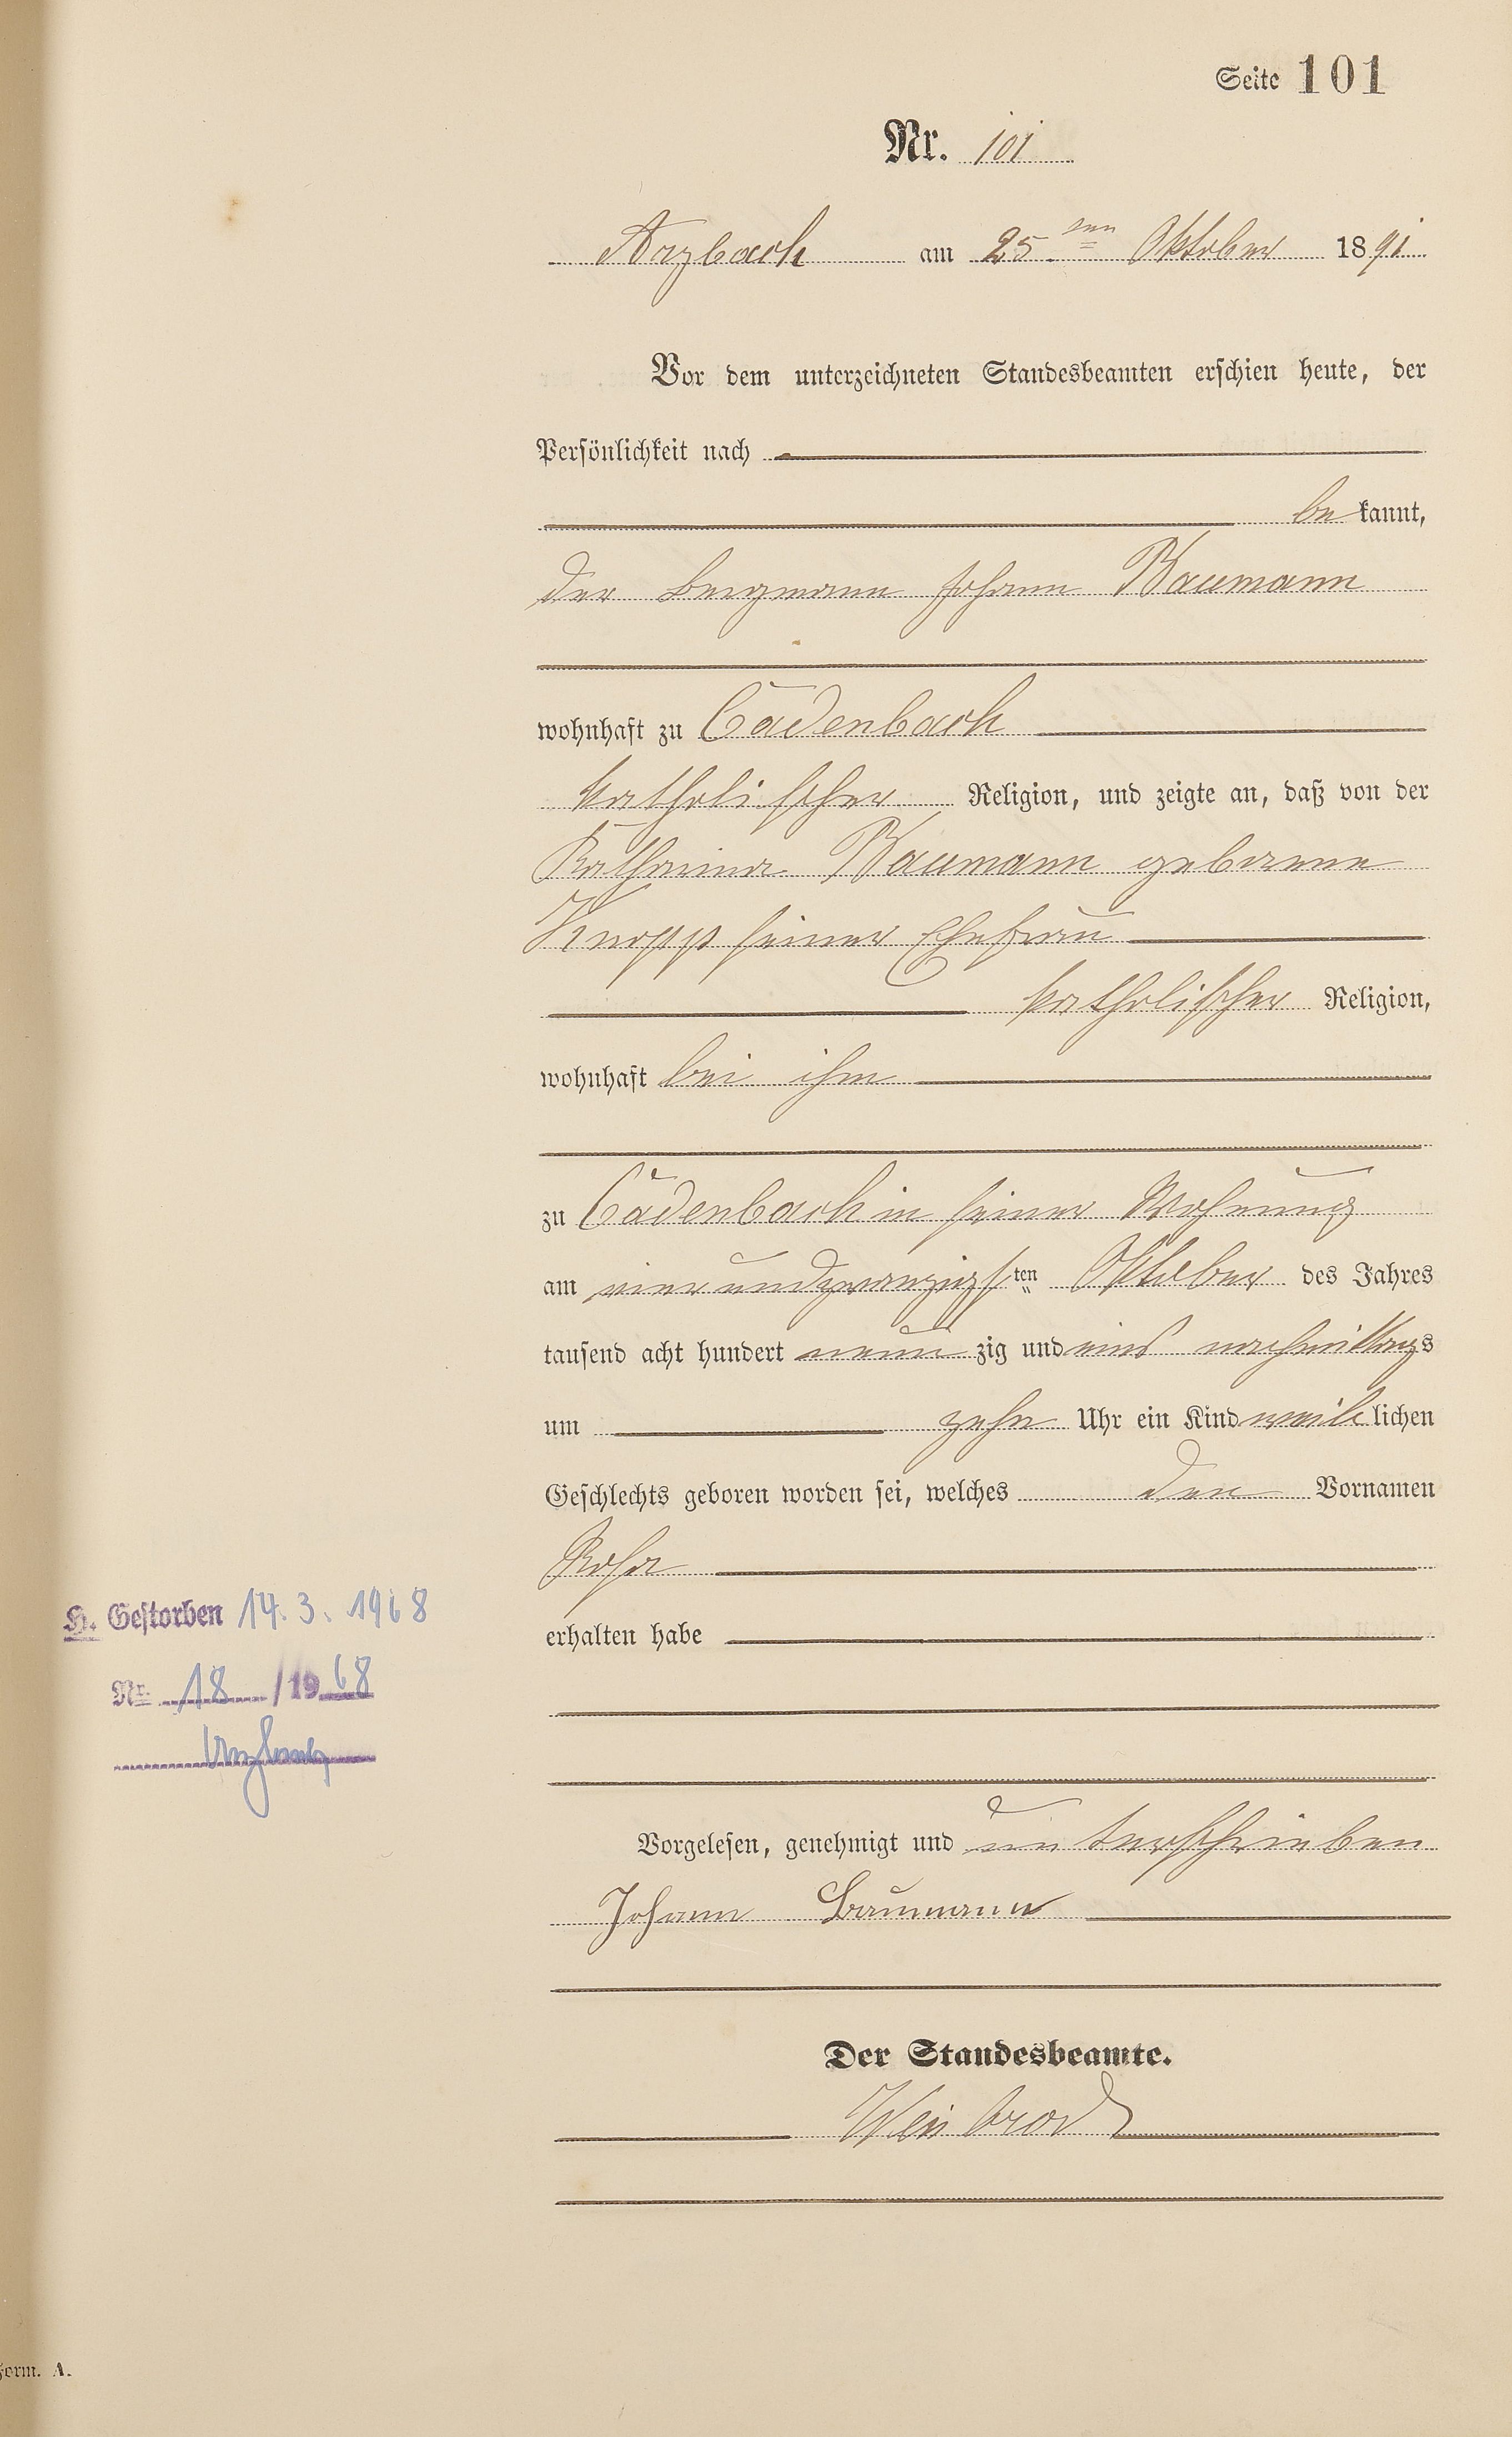 Seite 101
Nr. 101
Arzbach am 25. ten Oktober 1891
Vor dem unterzeichneten Standesbeamten erschien heute, der
Persönlichkeit nach
be kannt,
der Bergmann Johann Baumann
wohnhaft zu Cadenbach
katholischer Religion, und zeigte an, daß von der
Katharina Baumann geborene
Knopp seiner Ehefrau
katholischer Religion,
wohnhaft bei ihm
zu Cadenbach in seiner Wohnung
am vierundzwanzigsten Oktober des Jahres
tausend acht hundert neun zig und eins nachmittags
um zehn Uhr ein Kind weib lichen
Geschlechts geboren worden sei, welches den Vornamen
Rosa
H. Gestorben 14.3.1968
erhalten habe
Nr. 18 / 1968
Vorgelesen, genehmigt und unterschrieben
Johann Baumann
Der Standesbeamte.
Weinbrod
Form. A.